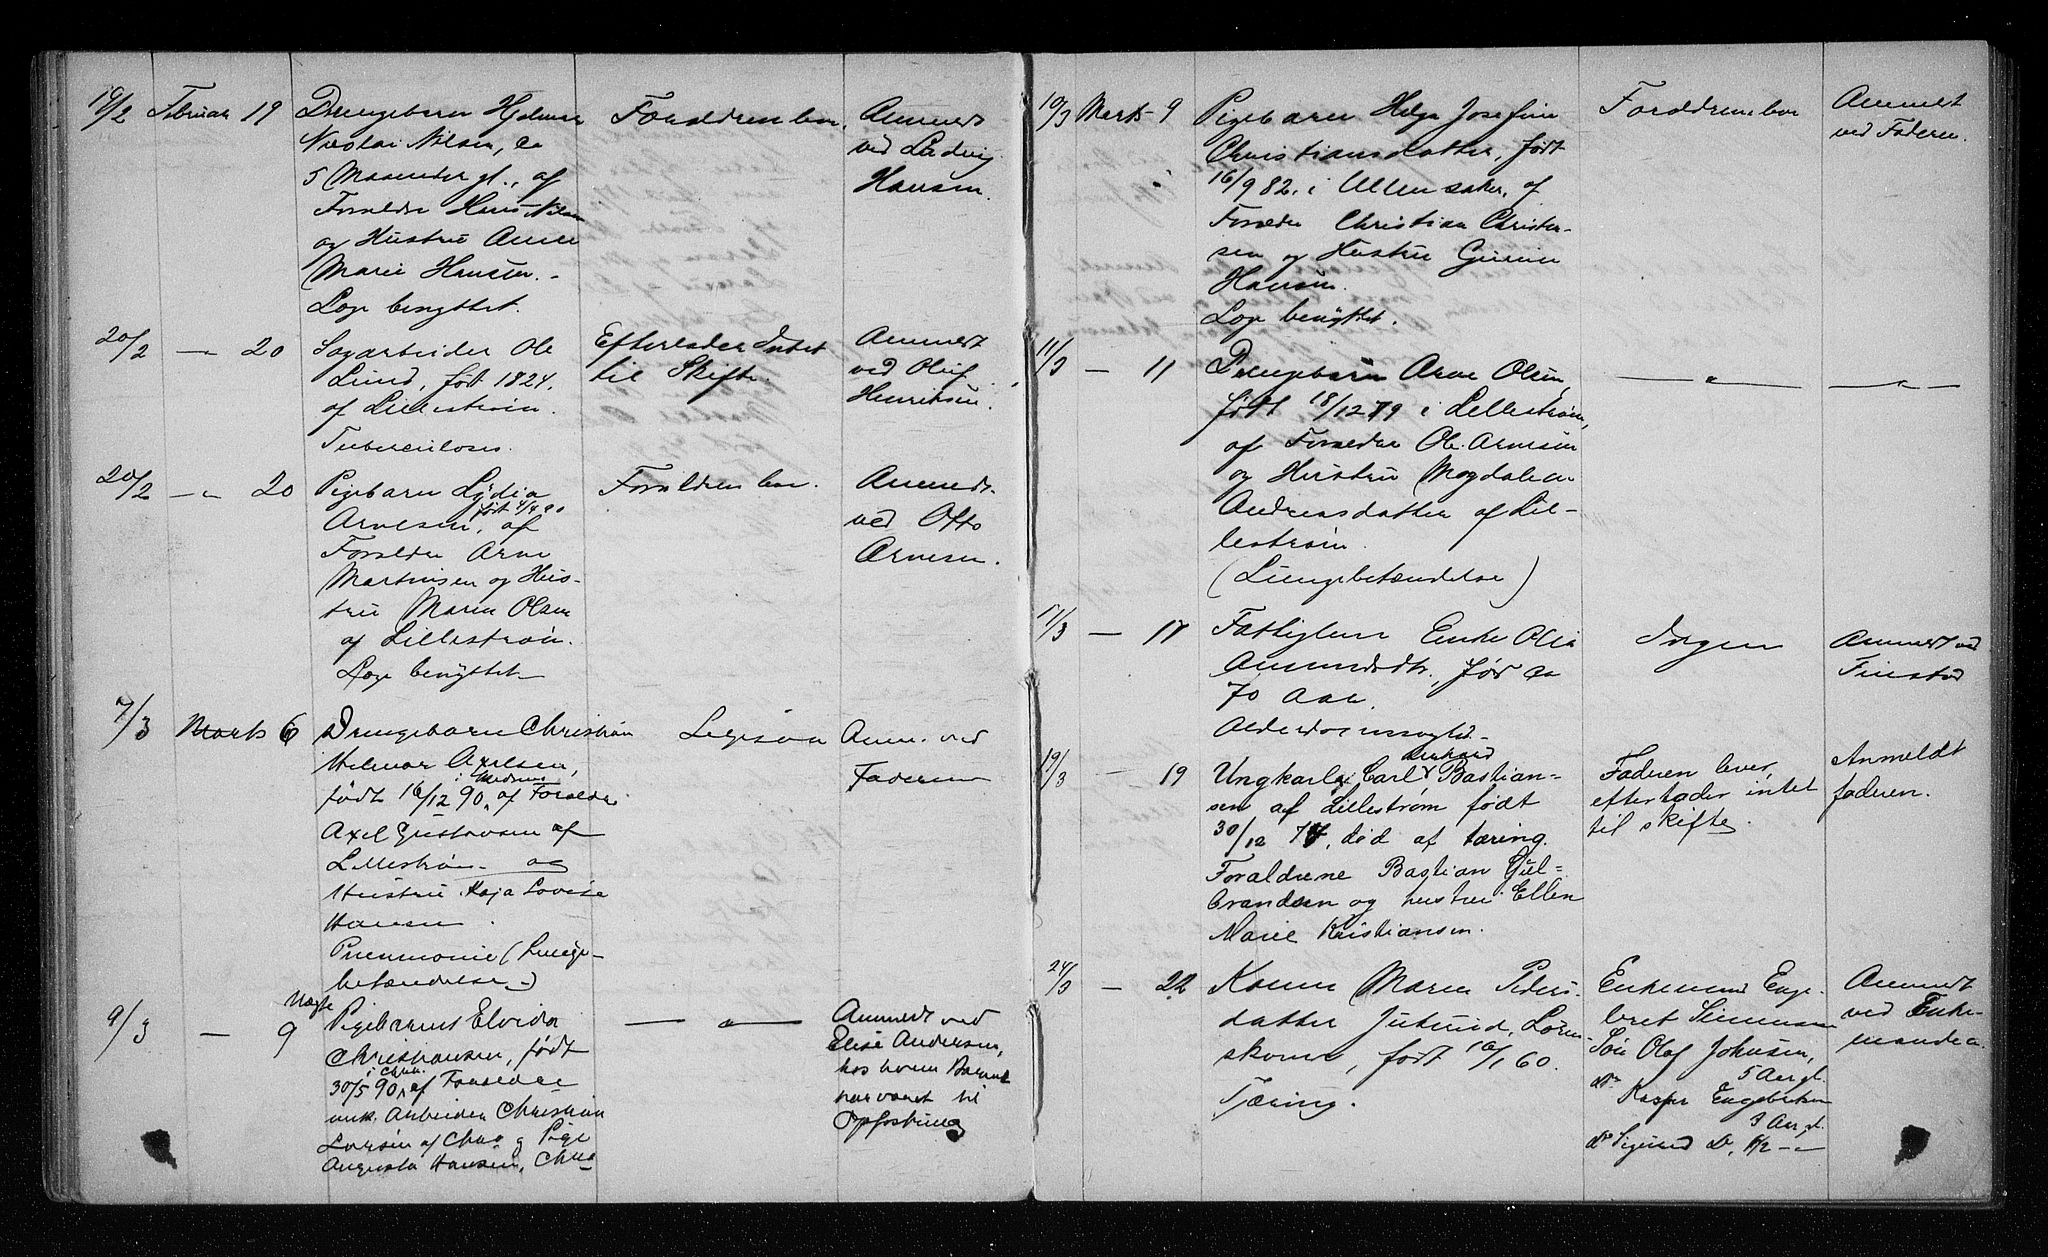 19/2 Februar 19 Drengebarn Hjalmar Forældrene lever. Anmeldt
Nicolai Nilsen, ca ved Ludvig
5 Maaneder gl., af Hansen.
Forældre Hans Nilsen
og Hustru Anne
Marie Hansen. -
Læge benyttet.
20/2 — " 20 Sagarbeider Ole Efterlader Intet Anmeldt
Lund, født 1824. til Skifte. ved Oluf
af Lillestrøm. Henriksen.
Tuberculose.
20/2 — " 20 Pigebarn Lydia Forældrene lever. Anmeldt
født 4/4 90
Arnesen, af ved Otto
Forældre Arne Arnesen.
Martinsen og Hus-
tru Maren Olsen
af Lillestrøm.
Læge benyttet
7/3 Marts 6 Drengebarn Christian Ligesaa Anm. ved
Helmar Axelsen, Faderen
født 16/12 90, af Forældre
Axel Gustavsen af
Lillestrøm og
Hustru Kaja Lovise
Hansen.
Pneumonie (Lunge-
betændelse)
9/3 — 9 Uægte Pigebarnet Elvida — " — Anmeldt ved
Christiansen, født Elise Andersen,
30/5 90, af Forældre hos hvem Barnet
unk. Arbeider Christian har været til
Larsen af Chra og Pige Opfostring
Augusta Hansen, Chra
10/3 Marts 9 Pigebarn Helga Josefine Forældrene lever Anmeldt
Christiansdatter, født ved Faderen.
16/9 82. i Ullensaker, af
Forældre Christian Christen-
sen og Hustru Gurine
Hansen.
Læge benyttet.
11/3 — 11 Drengebarn Arne Olsen, — " — — " —
født 18/12 79 i Lillestrøm,
af Forældre Ole Arnesen
og Hustru Magdalena
Andreasdatter af Lil-
lestrøm.
(Lungebetændelse)
17/3 — 17 Fattiglem Enke Olia Ingen Anmeldt ved
Amundsdtr., født ca Tinstad
70 Aar.
Alderdomssvaghed.
19/3 — 19 Ungkarl Carl Bastian- Faderen lever, Anmeldt
sen af Lillestrøm født efterlader intet faderen.
30/12 74, død af tæring. til skifte.
Forældrene Bastian Gul-
brandsen og hustru Ellen
Marie Kristiansen.
24/3 — 22 Kone Maren Peders- Enkemand Enge- Anmeldt
datter Julsrud, Løren- bret Simensen ved Enke-
skoven, født 16/1 60. Søn Olaf Johnsen, manden
Tæring. 5 Aar gl.
do Kasper Engebretsen
3 Aar gl.
do Sigurd Do, 1/2 — " —